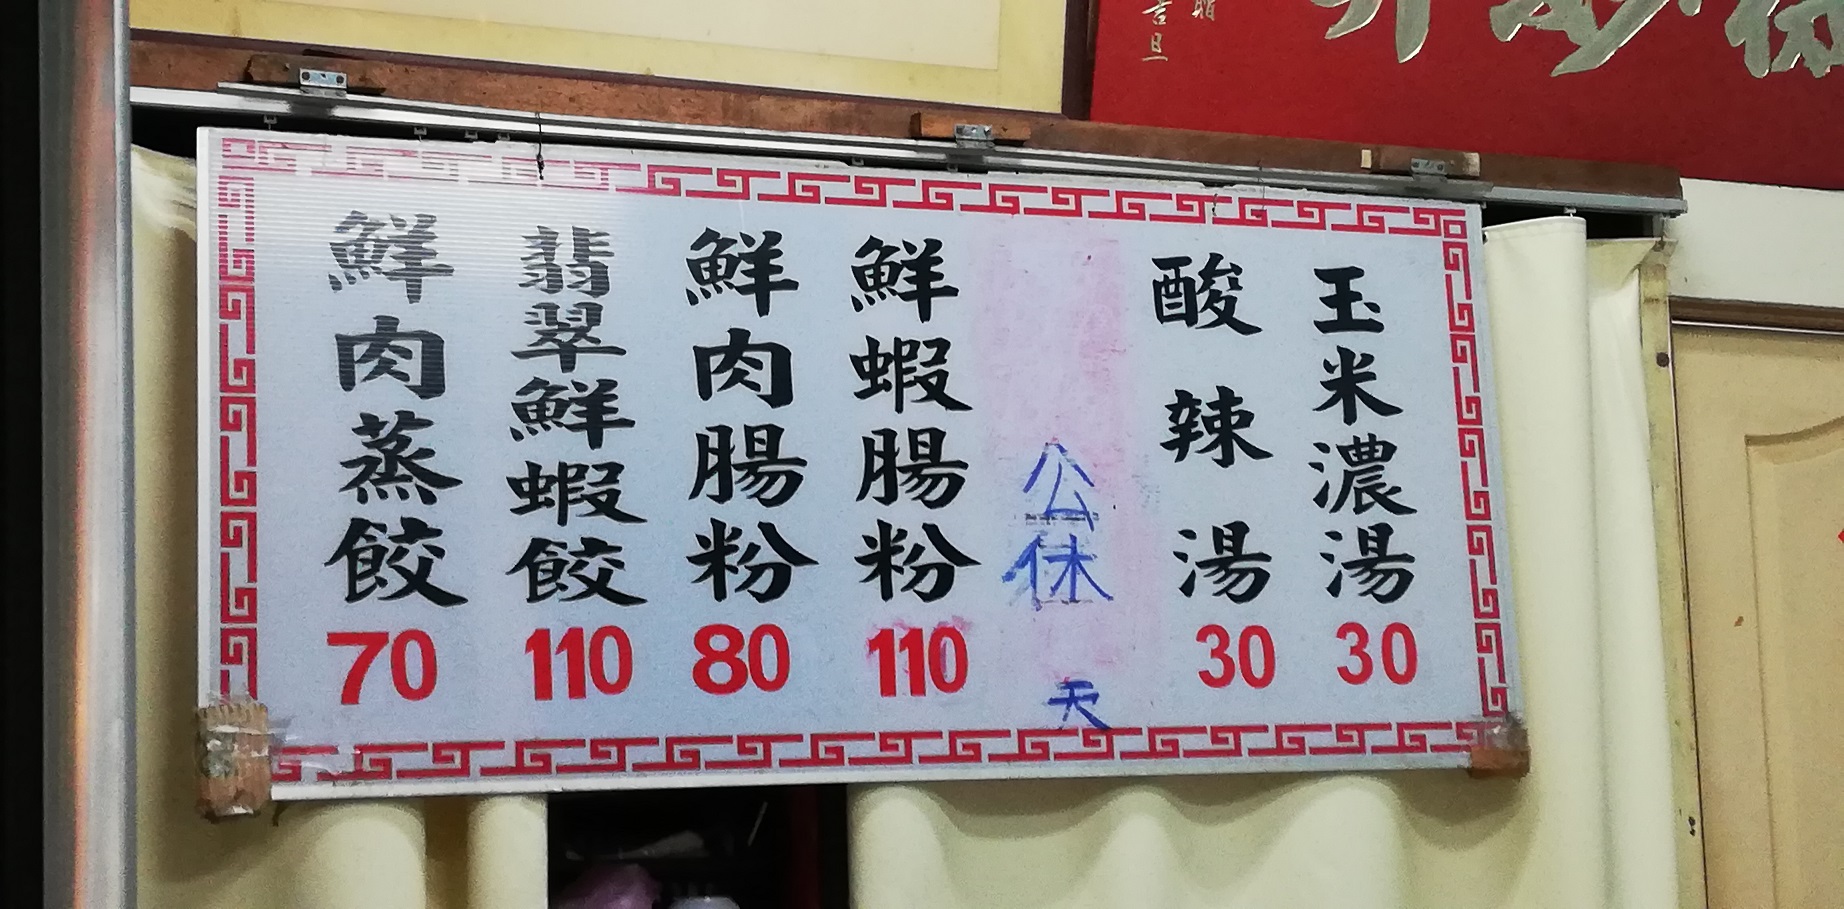 玉米濃湯
30
酸辣湯
30
公休
天
鮮蝦腸粉
110
鮮肉腸粉
80
翡翠鮮蝦餃
110
鮮肉蒸餃
70
吉旦